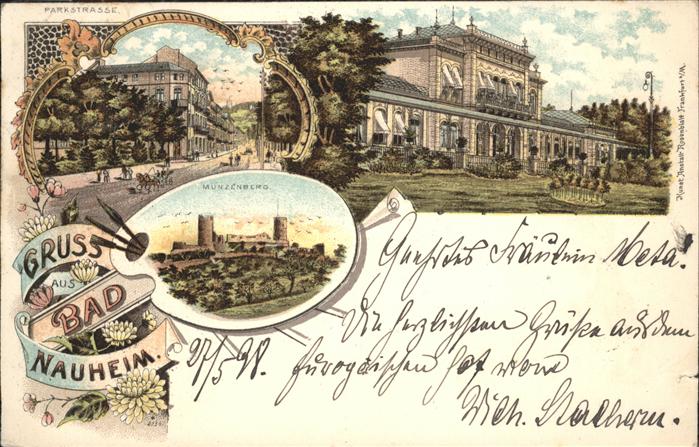 PARKSTRASSE.
MÜNZENBERG.
GRUSS
AUS
BAD
NAUHEIM.
Kunst-Anstalt Rosenblatt Frankfurt a/M.
Geehrtes Fräulein Meta.
Die herzlichsten Grüße aus dem
27/5 98. Europäischen Hof von
Wilh.